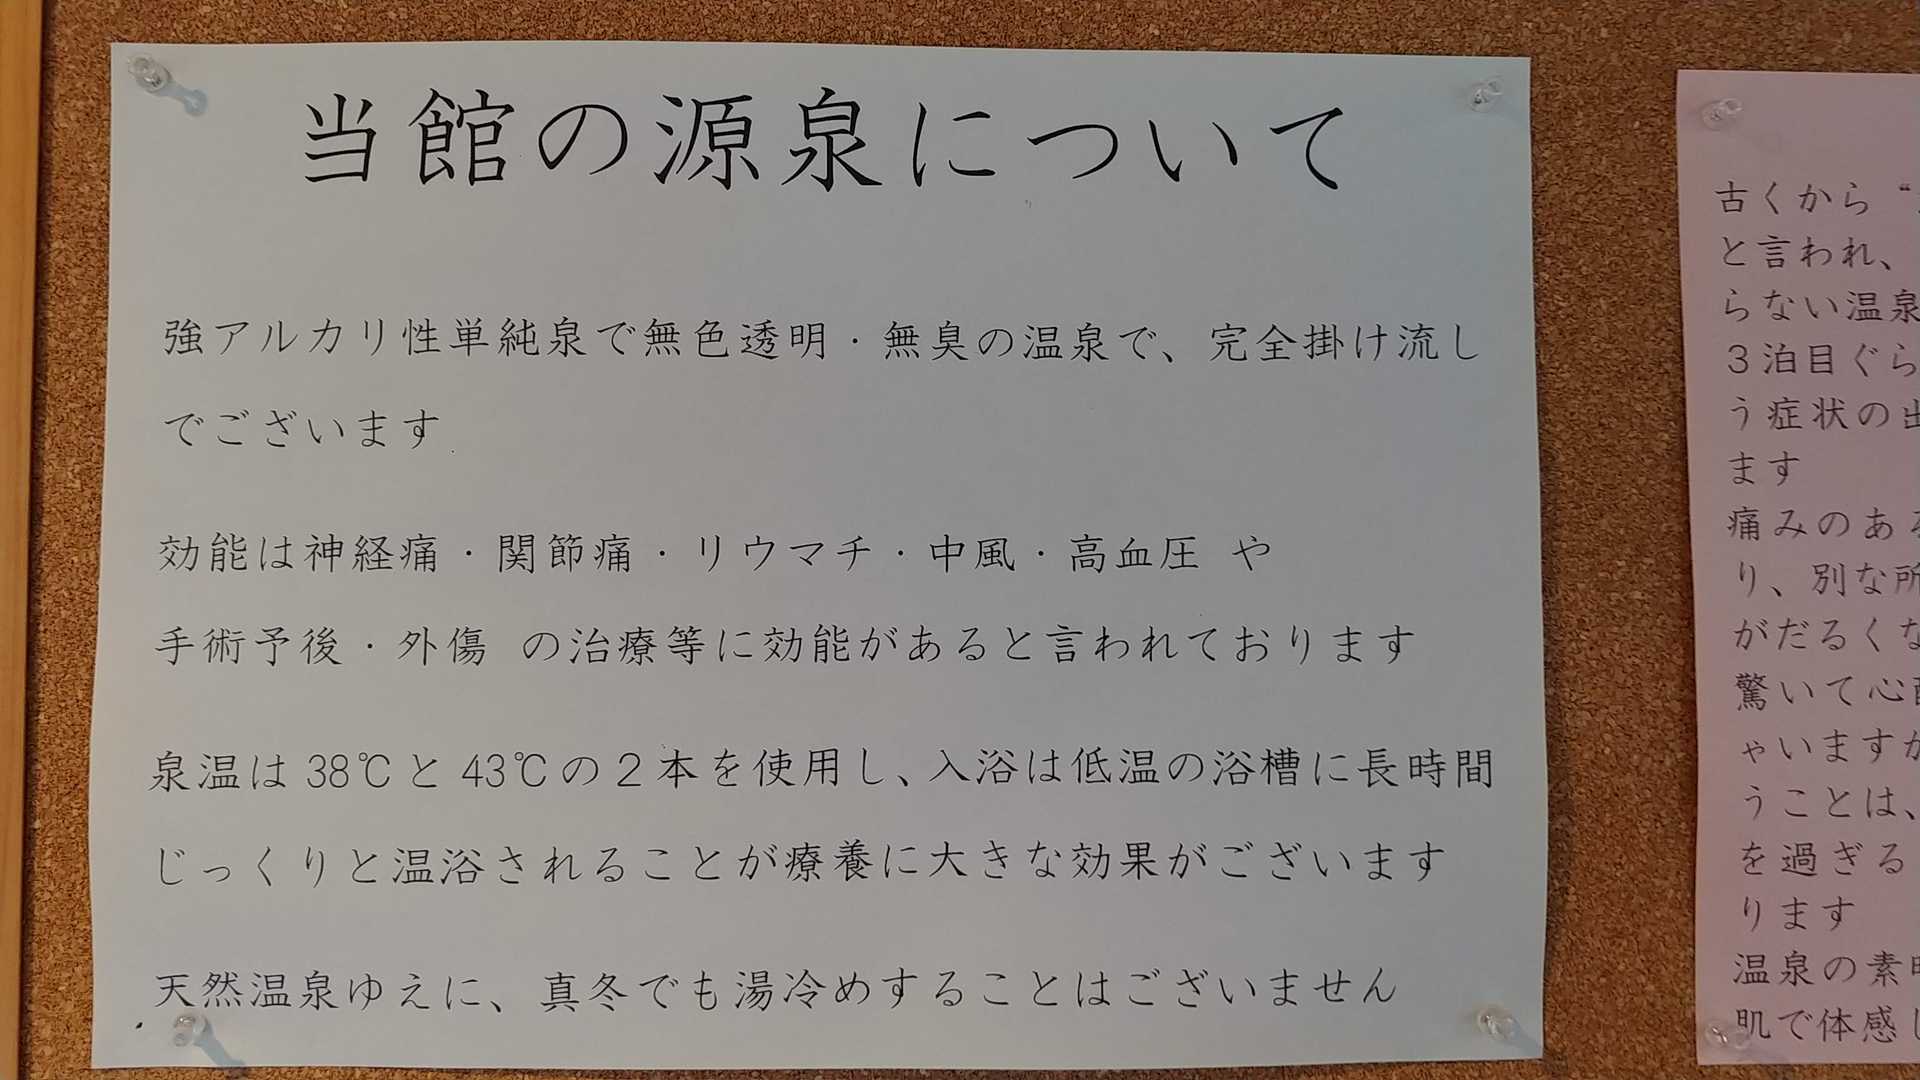 当館の源泉について
強アルカリ性単純泉で無色透明・無臭の温泉で、完全掛け流し
でございます
効能は神経痛・関節痛・リウマチ・中風・高血圧 や
手術予後・外傷 の治療等に効能があると言われております
泉温は 38℃と 43℃の2本を使用し、入浴は低温の浴槽に長時間
じっくりと温浴されることが療養に大きな効果がございます
天然温泉ゆえに、真冬でも湯冷めすることはございません
古くから“
と言われ、
らない温泉
3泊目ぐら
う症状の出
ます
痛みのある
り、別な所
がだるくな
驚いて心配
ゃいますが
うことは、
を過ぎる
ります
温泉の素晴
肌で体感し